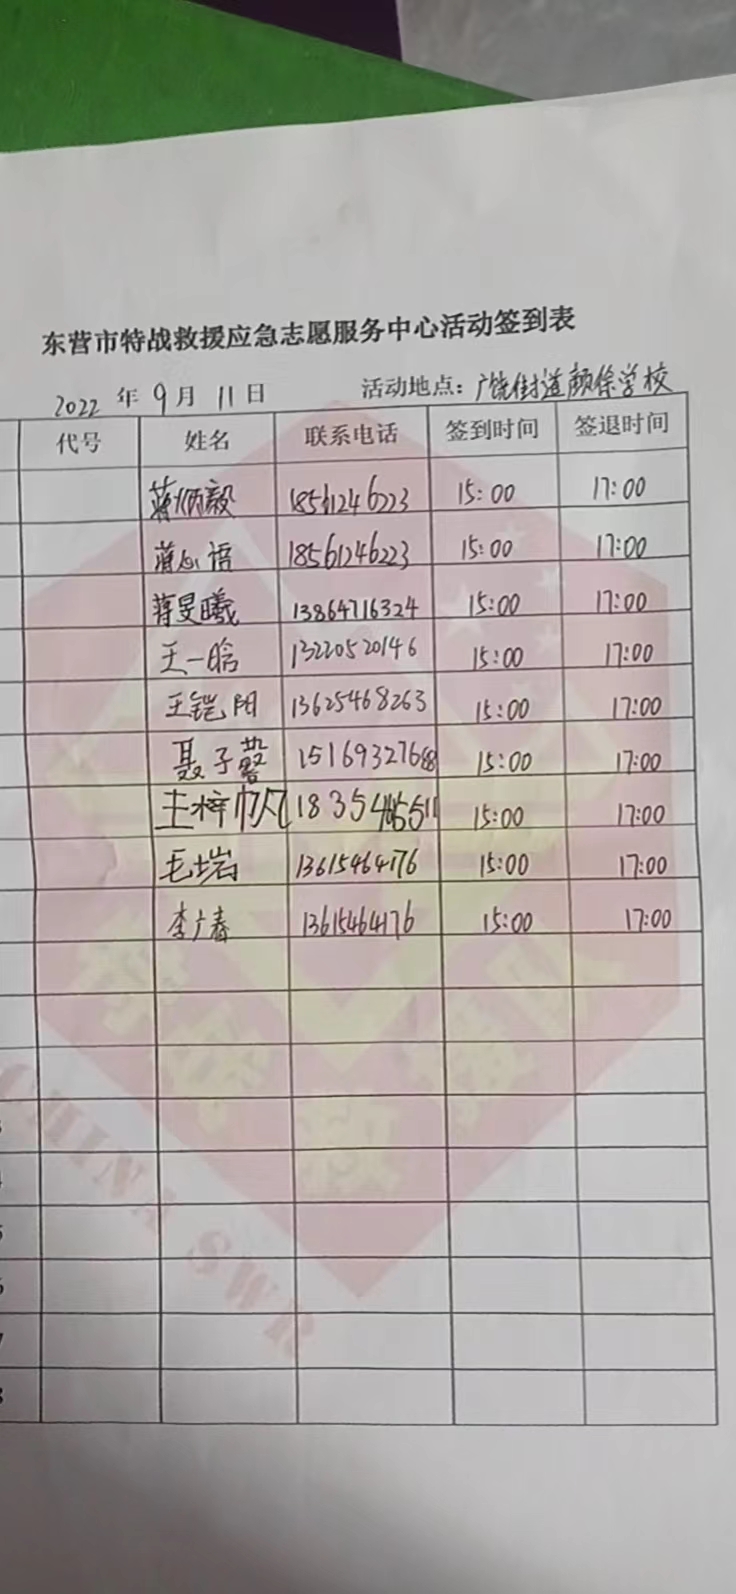 东营市特战救援应急志愿服务中心活动签到表
2022 年 9 月 11 日 活动地点：广饶街道颜徐学校
代号 姓名 联系电话 签到时间 签退时间
蒋炳毅 18561246223 15:00 17:00
蒋心语 18561246223 15:00 17:00
蒋旻曦 13864716324 15:00 17:00
王一晗 13220520146 15:00 17:00
王铠阳 13625468263 15:00 17:00
聂子 15:00 17:00
王梓帆 15:00 17:00
毛岩 13615464176 15:00 17:00
李广春 13615464176 15:00 17:00
特战救援队
CHINA SWR